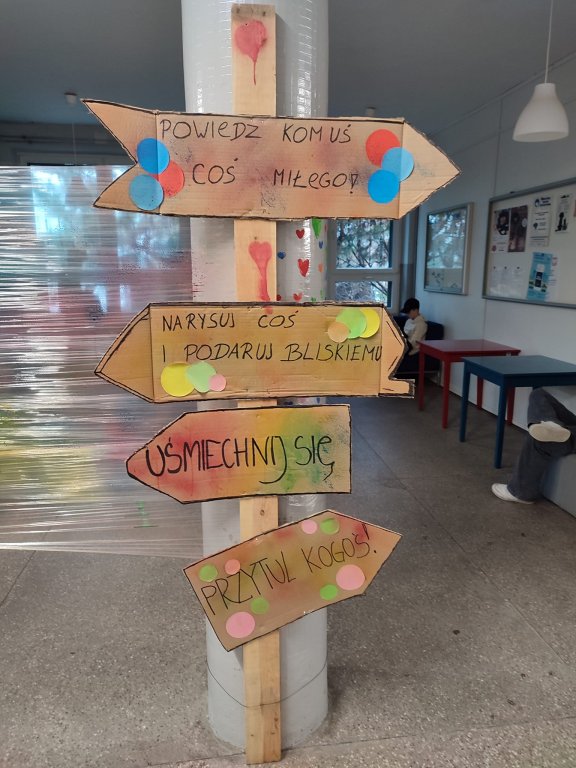 POWIEDZ KOMUŚ
COŚ MIŁEGO!
NARYSUJ COŚ
I PODARUJ BLISKIEMU
UŚMIECHNIJ SIĘ
PRZYTUL KOGOŚ!